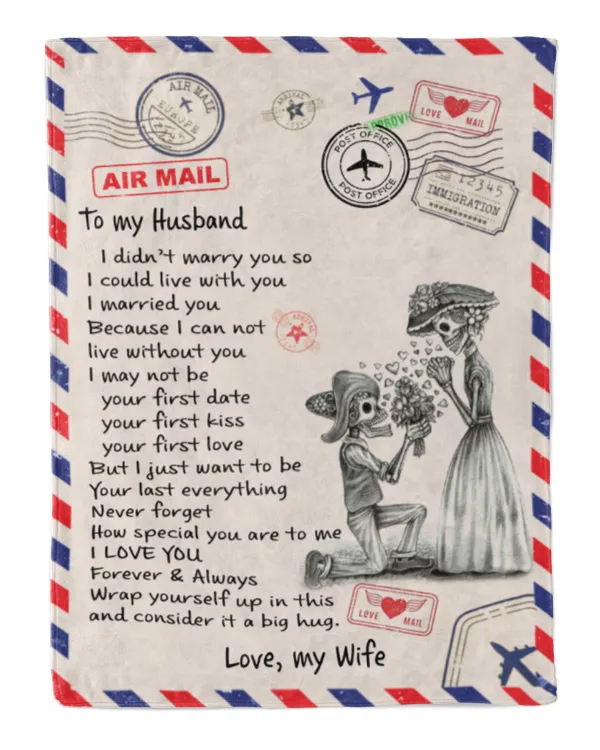 AIR MAIL
EUROPE
ARRIVAL
LOVE MAIL
POST OFFICE
POST OFFICE
12345
IMMIGRATION
AIR MAIL
To my Husband
I didn't marry you so
I could live with you
I married you
Because I can not
live without you
I may not be
your first date
your first kiss
your first love
But I just want to be
Your last everything
Never forget
How special you are to me
I LOVE YOU
Forever & Always
Wrap yourself up in this
and consider it a big hug.
LOVE MAIL
Love, my Wife